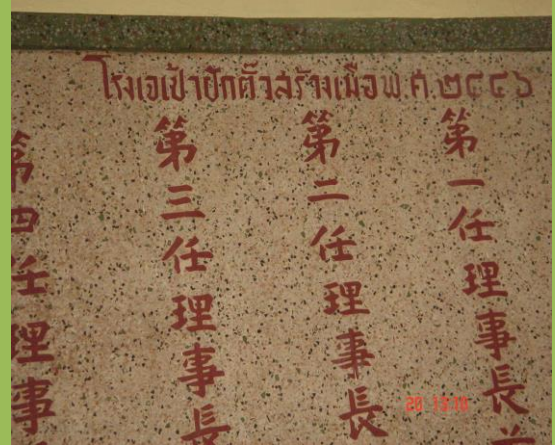 โรงเจเป้าฮักตั๊วสร้างเมื่อพ.ศ.๒๔๔๖
第一任理事長
第二任理事長
第三任理事長
第四任理事
20 13:10